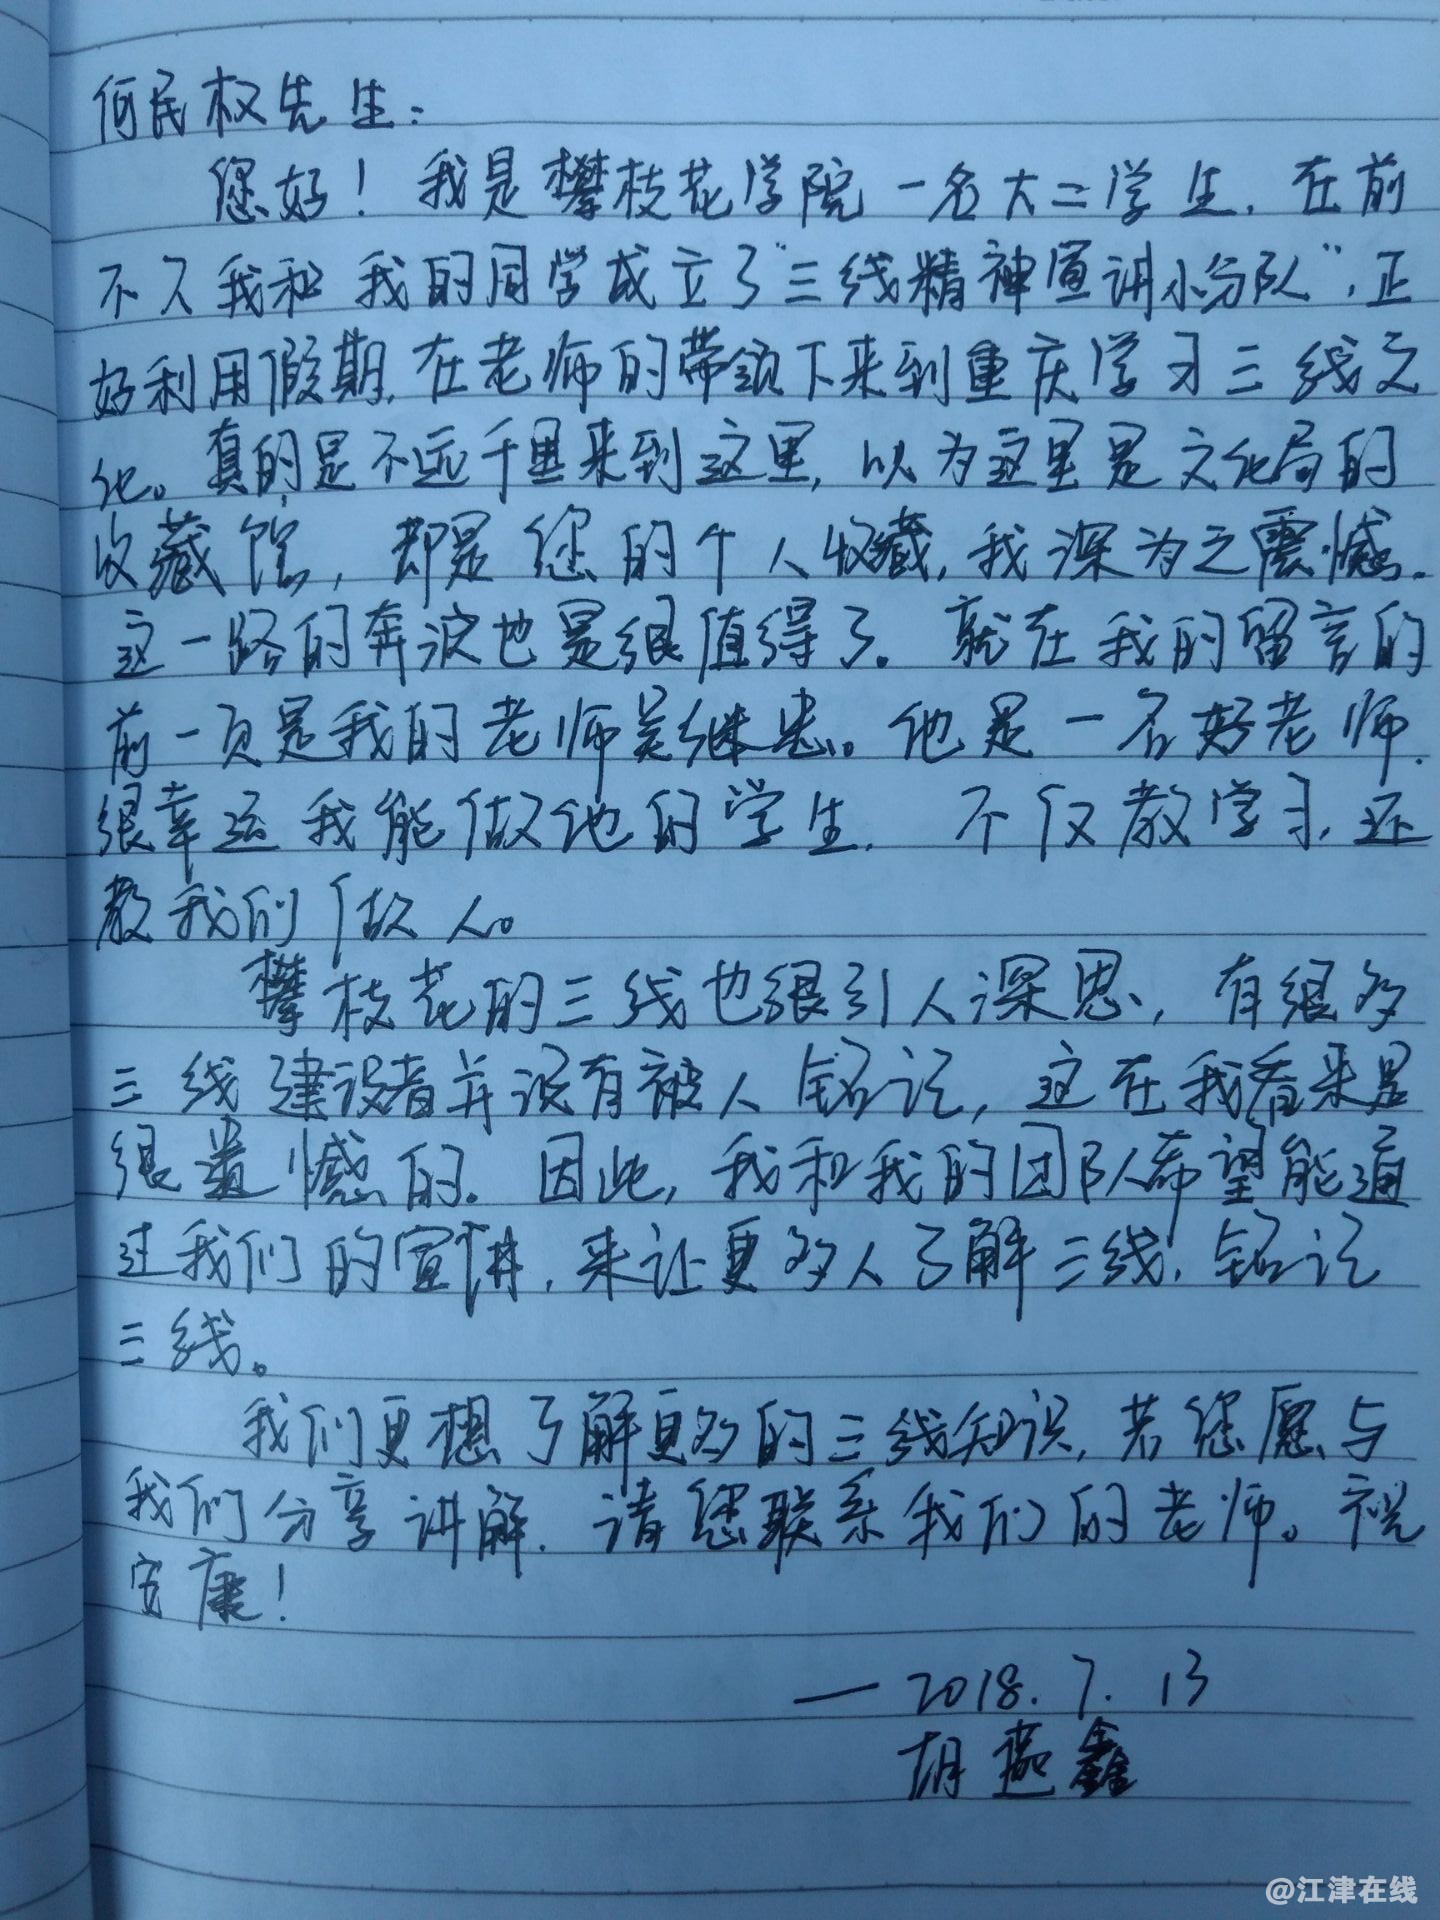 何民权先生：
您好！我是攀枝花学院一名大二学生，在前
不久我和我的同学成立了“三线精神宣讲小分队”，正
好利用假期，在老师的带领下来到重庆学习三线文
化。真的是不远千里来到这里，以为这里是文化局的
收藏馆，却是您的个人收藏，我深为之震憾。
这一路的奔波也是很值得了。就在我的留言的
前一页是我的老师吴继忠。他是一名好老师，
很幸运我能做他的学生，不仅教学习，还
教我们做人。
攀枝花的三线也很引人深思，有很多
三线建设者并没有被人铭记，这在我看来是
很遗憾的。因此，我和我的团队希望能通
过我们的宣讲，来让更多人了解三线，铭记
三线。
我们更想了解更多的三线知识，若您愿与
我们分享讲解，请您联系我们的老师。祝
安康！
— 2018.7.13
胡燕鑫
@江津在线